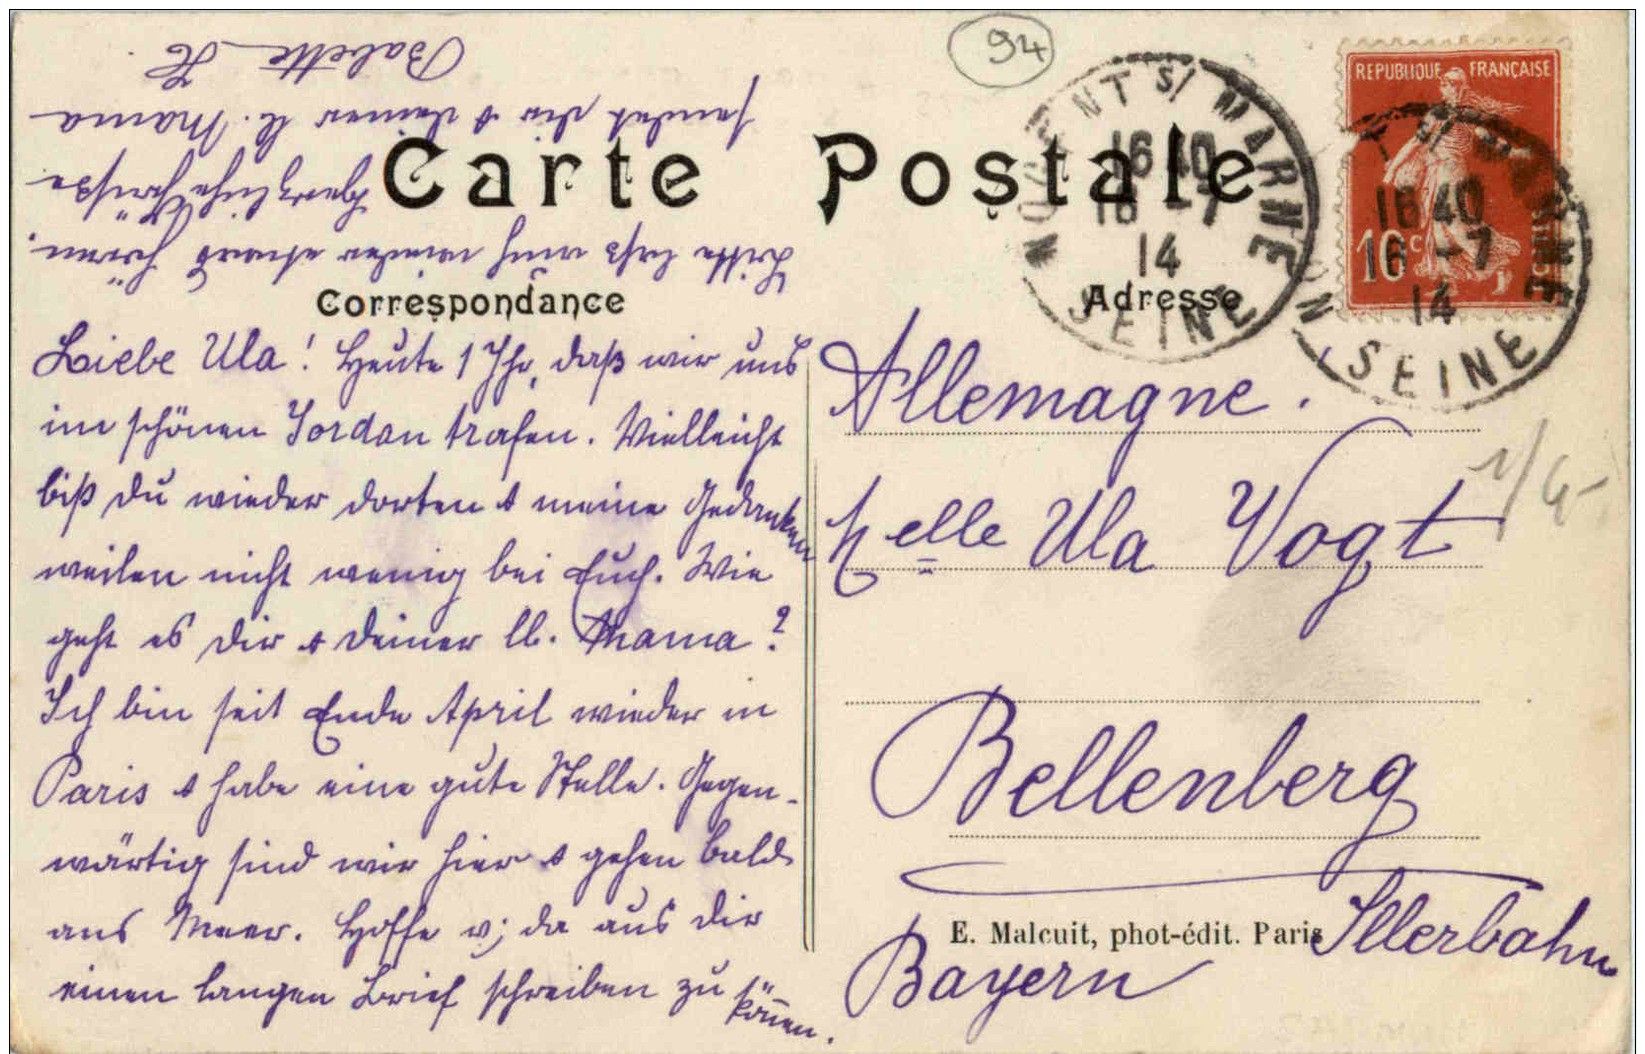 94
Carte Postale
Correspondance
Adresse
REPUBLIQUE FRANÇAISE
10c
NOGENT S/ MARNE
16 40
16 -7
14
SEINE
T S/ MARNE
16 40
16 -7
14
SEINE
Liebe Ula! Heute 1 Jhr, daß wir uns
im schönen Jordan trafen. Vielleicht
biß du wieder dorten & meine Gedanken
weilen nicht wenig bei Euch. Wie
geht es dir & deiner lb. Mama?
Ich bin seit Ende April wieder in
Paris & habe eine gute Stelle. Gegen-
wärtig sind wir hier & gehen bald
ans Meer. Hoffe v; da aus dir
einen langen Brief schreiben zu können.
Bitte laß auch wieder etwas hören.
Herzliche Grüße
sendet dir & deiner lb. Mama
Babette H.
Allemagne.
Melle Ula Vogt
1/4-
Bellenberg
Illerbahn
Bayern
E. Malcuit, phot-édit. Paris